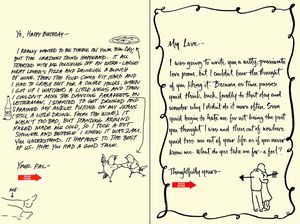 Yo, Happy Birthday—
I really wanted to be there on your big day
but the craziest thing happened. It all
started with me polishing off an extra-large
meat lovers pizza and drinking a bunch
of beer. Then the food coma hit hard and
I had to crash out for a couple hours. When
I got up I watched a little news and then
I couldn't miss the dancing parakeets on
Letterman. I started to get dressed and
I sprained my ankle putting on my jeans
(still a little drunk from the beer). It
wasn't too bad, but standing around
naked made me cold, so I took a hot
shower and before I knew it was 2AM.
You understand. It happens to the best
of us. Hope you had a good time.
Your Pal—
ME
My Love—
I was going to write you a witty, passionate
love poem, but I couldn't bear the thought
of you liking it. Because as time passes
you'd think back, fondly to that day and
wonder why I didn't do it more often. Soon
you'd begin to hate me for not being the poet
you thought I was and then out of nowhere
you'd toss me out of your life as if you never
knew me. What do you take me for a fool?
Thoughtfully yours—